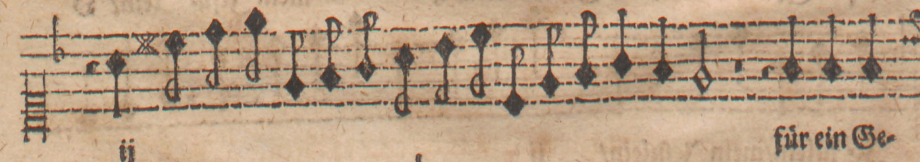 ij für ein Ge-